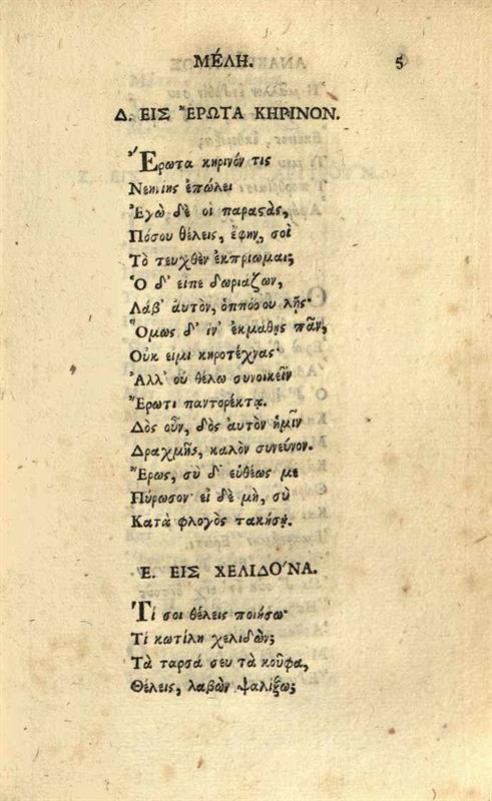 ΜΕΛΗ. 5
Δ. ΕΙΣ ἜΡΩΤΑ ΚΗΡΙΝΟΝ.
Ἔρωτα κηρινόν τις
Νεηνίης ἐπώλει·
Ἐγὼ δὲ οἱ παραστὰς,
Πόσου θέλεις, ἔφην, σοὶ
Τὸ τευχθὲν ἐκπρίωμαι;
Ὁ δ' εἶπε δωριάζων,
Λάβ' ἀυτὸν, ὁππόσου λῇς·
Ὅμως δ' ἵν' ἐκμάθῃς πᾶν,
Οὐκ εἰμὶ κηροτέχνας·
Ἀλλ' οὐ θέλω συνοικεῖν
Ἔρωτι παντορέκτᾳ.
Δὸς οὖν, δὸς ἀυτὸν ἡμῖν
Δραχμῆς, καλὸν σύνευνον.
Ἔρως, σὺ δ' εὐθέως με
Πύρωσον· εἰ δὲ μὴ, σὺ
Κατὰ φλογὸς τακήσῃ.
Ε. ΕΙΣ ΧΕΛΙΔΟ'ΝΑ.
Τί σοι θέλεις ποιήσω·
Τί κωτίλη χελιδὼν;
Τὰ ταρσά σευ τὰ κοῦφα,
Θέλεις, λαβὼν ψαλίξω;